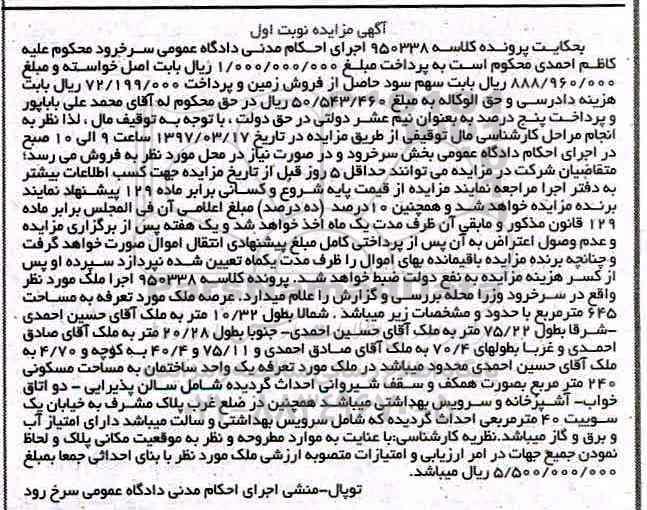 آگهی مزایده نوبت اول
بحکایت پرونده کلاسه ۹۵۰۳۳۸ اجرای احکام مدنی دادگاه عمومی سرخرود محکوم علیه
کاظم احمدی محکوم است به پرداخت مبلغ ۱/۰۰۰/۰۰۰/۰۰۰ ریال بابت اصل خواسته و مبلغ
۸۸۸/۹۶۰/۰۰۰ ریال بابت سهم سود حاصل از فروش زمین و پرداخت ۷۲/۱۹۹/۰۰۰ ریال بابت
هزینه دادرسی و حق الوکاله به مبلغ ۵۰/۵۴۳/۴۶۰ ریال در حق محکوم له آقای محمد علی باباپور
و پرداخت پنج درصد به بعنوان نیم عشر دولتی در حق دولت ، با توجه به توقیف مال ، لذا نظر به
انجام مراحل کارشناسی مال توقیفی از طریق مزایده در تاریخ ۱۳۹۷/۰۳/۱۷ ساعت ۹ الی ۱۰ صبح
در اجرای احکام دادگاه عمومی بخش سرخرود و در صورت نیاز در محل مورد نظر به فروش می رسد؛
متقاضیان شرکت در مزایده می توانند حداقل ۵ روز قبل از تاریخ مزایده جهت کسب اطلاعات بیشتر
به دفتر اجرا مراجعه نمایند مزایده از قیمت پایه شروع و کسانی برابر ماده ۱۲۹ پیشنهاد نمایند
برنده مزایده خواهد شد و همچنین ۱۰درصد (ده درصد) مبلغ اعلامی آن فی المجلس برابر ماده
۱۲۹ قانون مذکور و مابقی آن ظرف مدت یک ماه اخذ خواهد شد و یک هفته پس از برگزاری مزایده
و عدم وصول اعتراض به آن پس از پرداختی کامل مبلغ پیشنهادی انتقال اموال صورت خواهد گرفت
و چنانچه برنده مزایده باقیمانده بهای اموال را ظرف مدت یکماه تعیین شده نپردازد سپرده او پس
از کسر هزینه مزایده به نفع دولت ضبط خواهد شد. پرونده کلاسه ۹۵۰۳۳۸ اجرا ملک مورد نظر
واقع در سرخرود وزرا محله بررسی و گزارش را اعلام میدارد. عرصه ملک مورد تعرفه به مساحت
۶۴۵ مترمربع با حدود و مشخصات زیر میباشد . شمالا بطول ۱۰/۳۲ متر به ملک آقای حسین احمدی
-شرقا بطول ۷۵/۲۲ متر به ملک آقای حسین احمدی- جنوبا بطول ۲۰/۲۸ متر به ملک آقای صادق
احمدی و غربا بطولهای ۷۰/۴ به ملک آقای صادق احمدی و ۷۵/۱۱ و ۴۰/۴ به کوچه و ۴/۷۰ به
ملک آقای حسین احمدی محدود میباشد در ملک مورد تعرفه یک واحد ساختمان به مساحت مسکونی
۲۴۰ متر مربع بصورت همکف و سقف شیروانی احداث گردیده شامل سالن پذیرایی - دو اتاق
خواب- آشپزخانه و سرویس بهداشتی میباشد همچنین در ضلع غربی پلاک مشرف به خیابان یک
سوییت ۴۰ مترمربعی احداث گردیده که شامل سرویس بهداشتی و سالت میباشد دارای امتیاز آب
و برق و گاز میباشد.نظریه کارشناسی:با عنایت به موارد مطروحه و نظر به موقعیت مکانی پلاک و لحاظ
نمودن جمیع جهات در امر ارزیابی و امتیازات متصوبه ارزشی ملک مورد نظر با بنای احداثی جمعا بمبلغ
۵/۵۰۰/۰۰۰/۰۰۰ ریال میباشد.
توپال-منشی اجرای احکام مدنی دادگاه عمومی سرخ رود